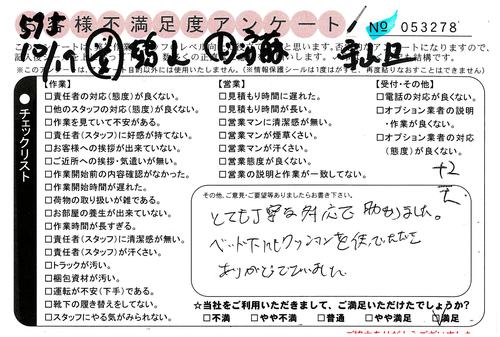 お客様不満足度アンケート No 053278
575
10/17 金
【作業】
□責任者の対応(態度)が良くない。
□他のスタッフの対応(態度)が良くない。
□作業を見ていて不安がある。
□責任者(スタッフ)に好感が持てない。
□お客様への挨拶が出来ていない。
□ご近所への挨拶・気遣いが無い。
□作業開始前の内容確認がなかった。
□作業開始時間が遅れた。
□荷物の取り扱いが雑である。
□お部屋の養生が出来ていない。
□作業時間が長すぎる。
□責任者(スタッフ)に清潔感が無い。
□責任者(スタッフ)が汗くさい。
□トラックが汚い。
□梱包資材が汚い。
□運転が不安(下手)である。
□靴下の履き替えをしてない。
□スタッフにやる気がみられない。
【営業】
□見積もり時間に遅れた。
□見積もり時間が長い。
□営業マンに清潔感が無い。
□営業マンが煙草くさい。
□営業マンが汗くさい。
□営業態度が良くない。
□営業の説明と作業が一致してない。
【受付・その他】
□電話の対応が良くない。
□オプション業者の説明
・作業が良くない。
□オプション業者の対応
(態度)が良くない。
チェックリスト
+2
その他、ご意見・ご要望等ありましたらお書き下さい。
とても丁寧な対応で助かりました。
ベッド下にもクッションを使っていただき
ありがとうございました
☆当社をご利用いただきまして、ご満足いただけたでしょうか?
□不満 □やや不満 □普通 □やや満足 □満足